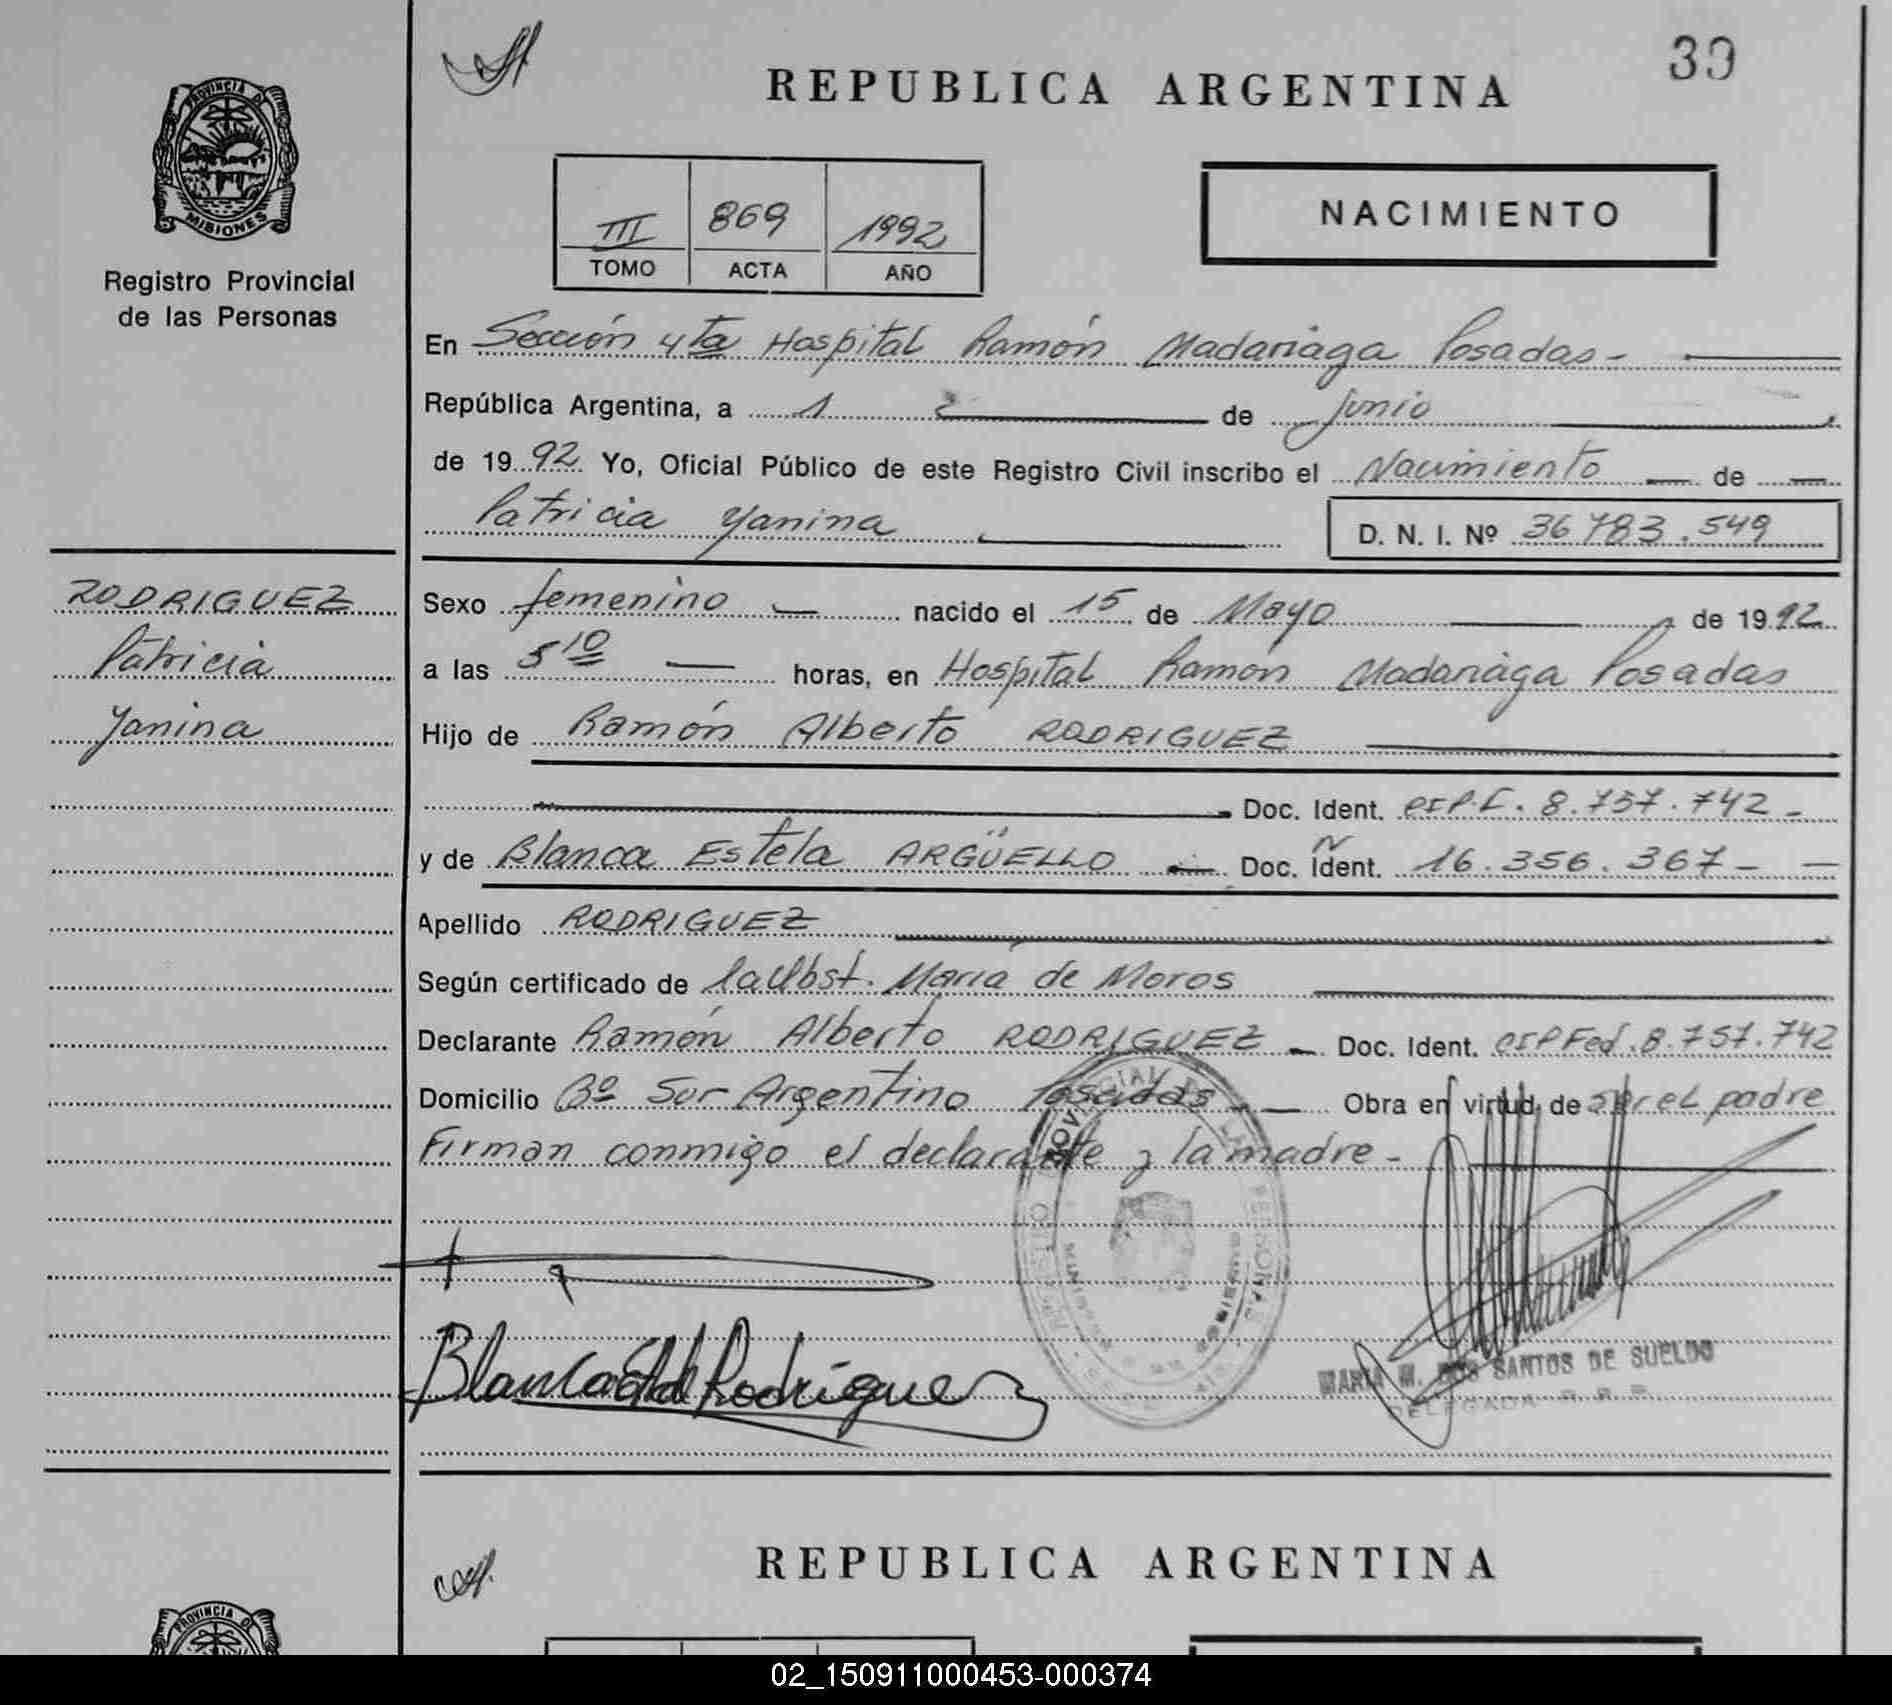 39
REPUBLICA ARGENTINA
PROVINCIA DE
MISIONES
Registro Provincial
de las Personas
III 869 1992
TOMO ACTA AÑO
NACIMIENTO
En Sección 4ta Hospital Ramón Madariaga Posadas-
República Argentina, a 1 de Junio
de 1992 Yo, Oficial Público de este Registro Civil inscribo el Nacimiento de
Patricia Yanina D. N. I. Nº 36783.549
RODRIGUEZ
Patricia
Yanina
Sexo femenino nacido el 15 de Mayo de 1992
a las 5 10 horas, en Hospital Ramón Madariaga Posadas
Hijo de Ramón Alberto RODRIGUEZ
Doc. Ident. 8.757.742-
y de Blanca Estela ARGÜELLO Doc. Ident. 16.356.367-
Apellido RODRIGUEZ
Según certificado de la Obst. María de Moros
Declarante Ramón Alberto RODRIGUEZ Doc. Ident. 8.757.742
Domicilio Bº Sur Argentino Posadas Obra en virtud de ser el padre
Firman conmigo el declarante y la madre-
Blanca Rodríguez
MARIA M. DOS SANTOS DE SUELDO
DELEGADA
REPUBLICA ARGENTINA
PROVINCIA DE
02_150911000453-000374